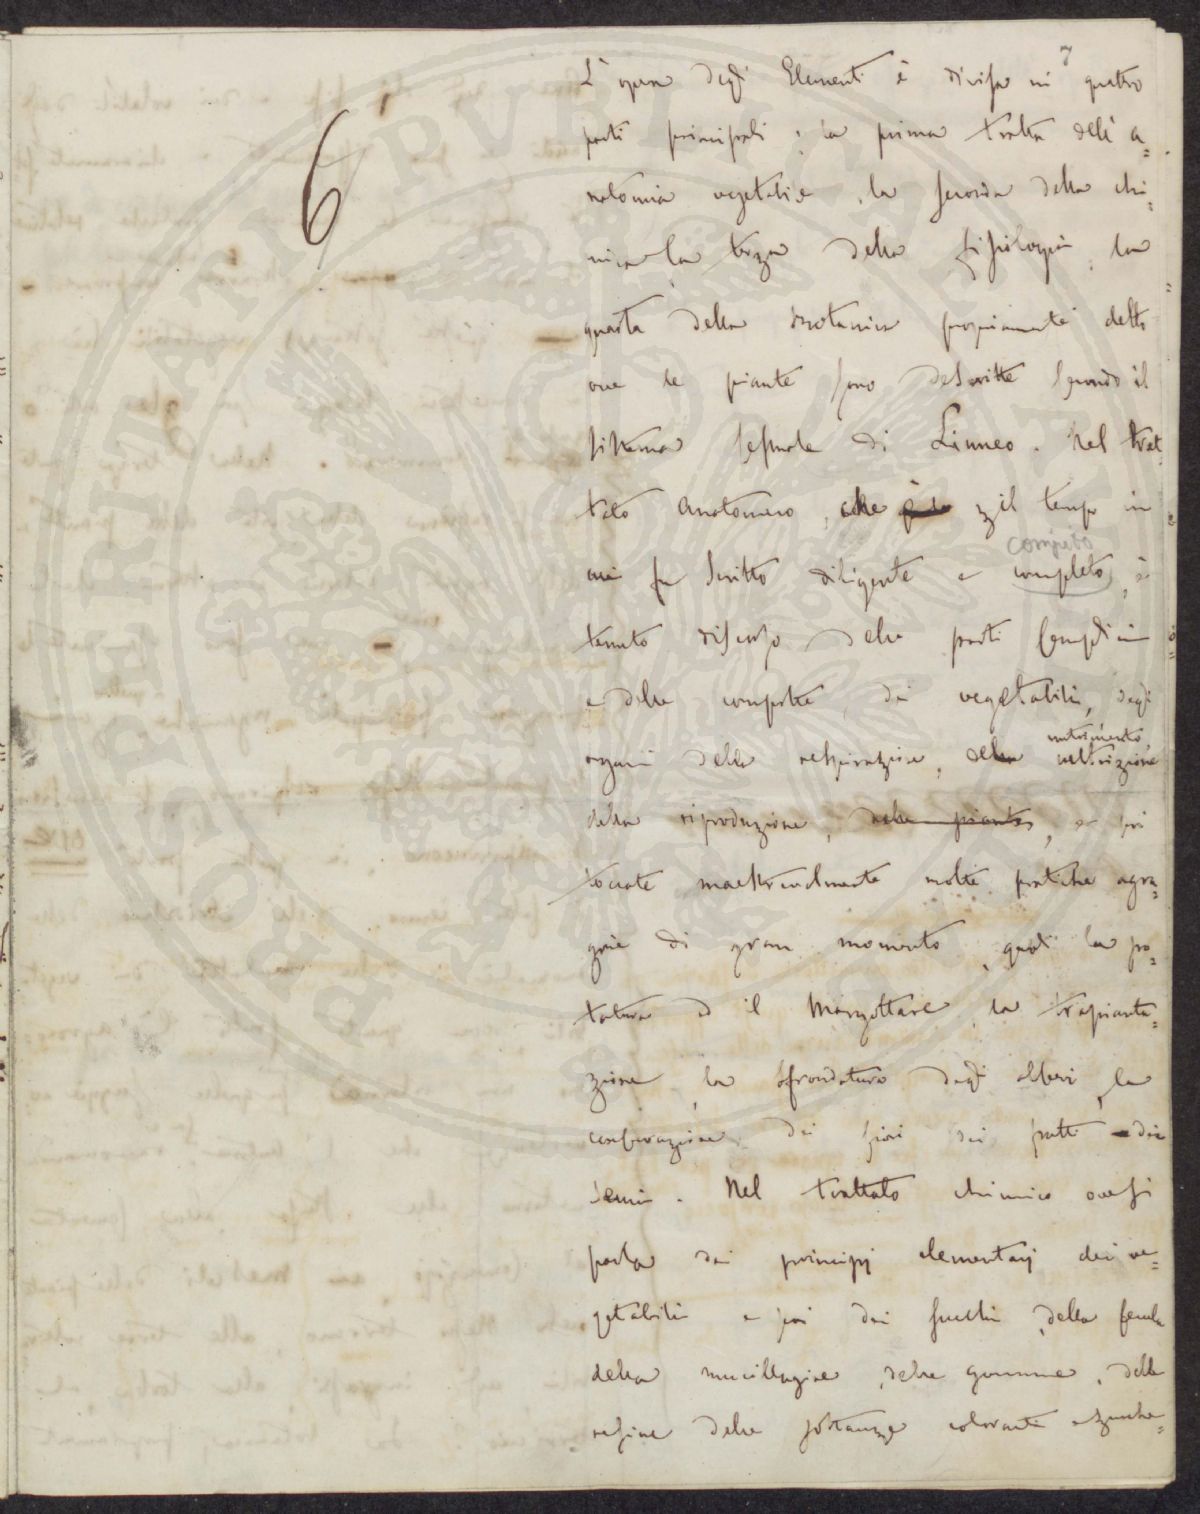 7
6
L'opera degli Elementi è divisa in quattro
parti principali; la prima tratta dell'a=
natomia vegetabile, la seconda della chi=
mica, la terza della fisiologia, la
quarta della botanica propriamente detta
ove le piante sono descritte secondo il
sistema sessuale di Linneo. Nel trat=
tato anatomico, che il tempo in
compito
cui fu scritto diligente e completo, è
tenuto discorso delle parti semplici
e delle composte dei vegetabili, degli
nutrimento
organi della respirazione, della nutrizione
della riproduzione, delle piante, e poi
toccate maestrevolmente molte pratiche agra=
rie di gran momento, quali la po=
tatura ed il margottare, la trapianta=
zione, la sfrondatura degli alberi, la
conservazione dei fiori dei frutti e dei
semi. Nel trattato chimico ove si
parla dei principj elementarj dei ve=
getabili e poi dei succhi, della fecula
della mucillagine, delle gomme, delle
resine delle sostanze coloranti e zucche=
PROSPERITATI PUBLICAE